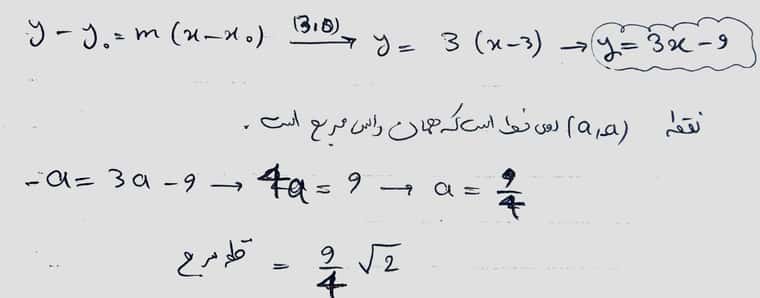 y - y₀ = m (x - x₀) (3,0)→ y = 3 (x-3) → y = 3x - 9
نقطه (a,-a) روی خط است که همان راس مربع است.
-a = 3a - 9 → 4a = 9 → a = 9/4
قطر مربع = 9/4 √2